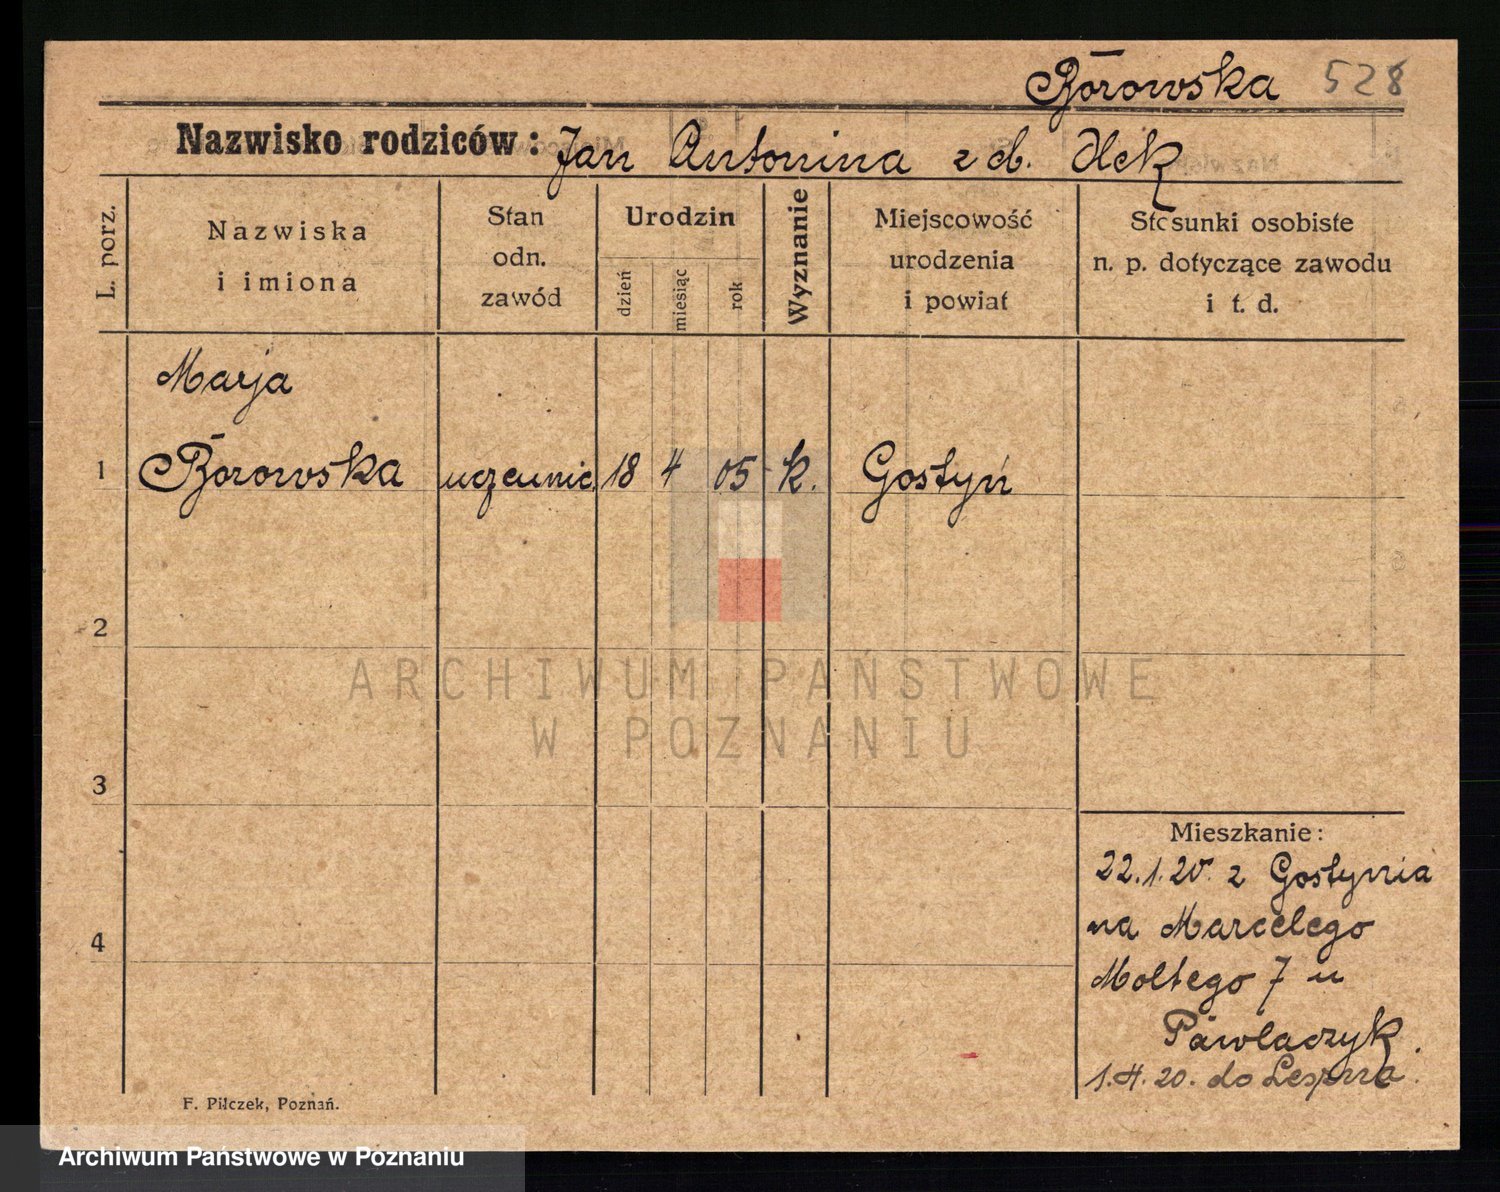 Borowska 528
Nazwisko rodziców: Jan Antonina z d.
L. porz.
Nazwiska
i imiona
Stan
odn.
zawód
Urodzin
dzień
miesiąc
rok
Wyznanie
Miejscowość
urodzenia
i powiat
Stosunki osobiste
n. p. dotyczące zawodu
i t. d.
Marja
1 Borowska uczennic. 18 4 05 k. Gostyń
2
3
4
Mieszkanie:
22.1.20. z Gostynia
na Marcelego
Moltego 7 u
Pawlaczyk
1.4.20. do
F. Pilczek, Poznań.
ARCHIWUM PAŃSTWOWE
W POZNANIU
Archiwum Państwowe w Poznaniu